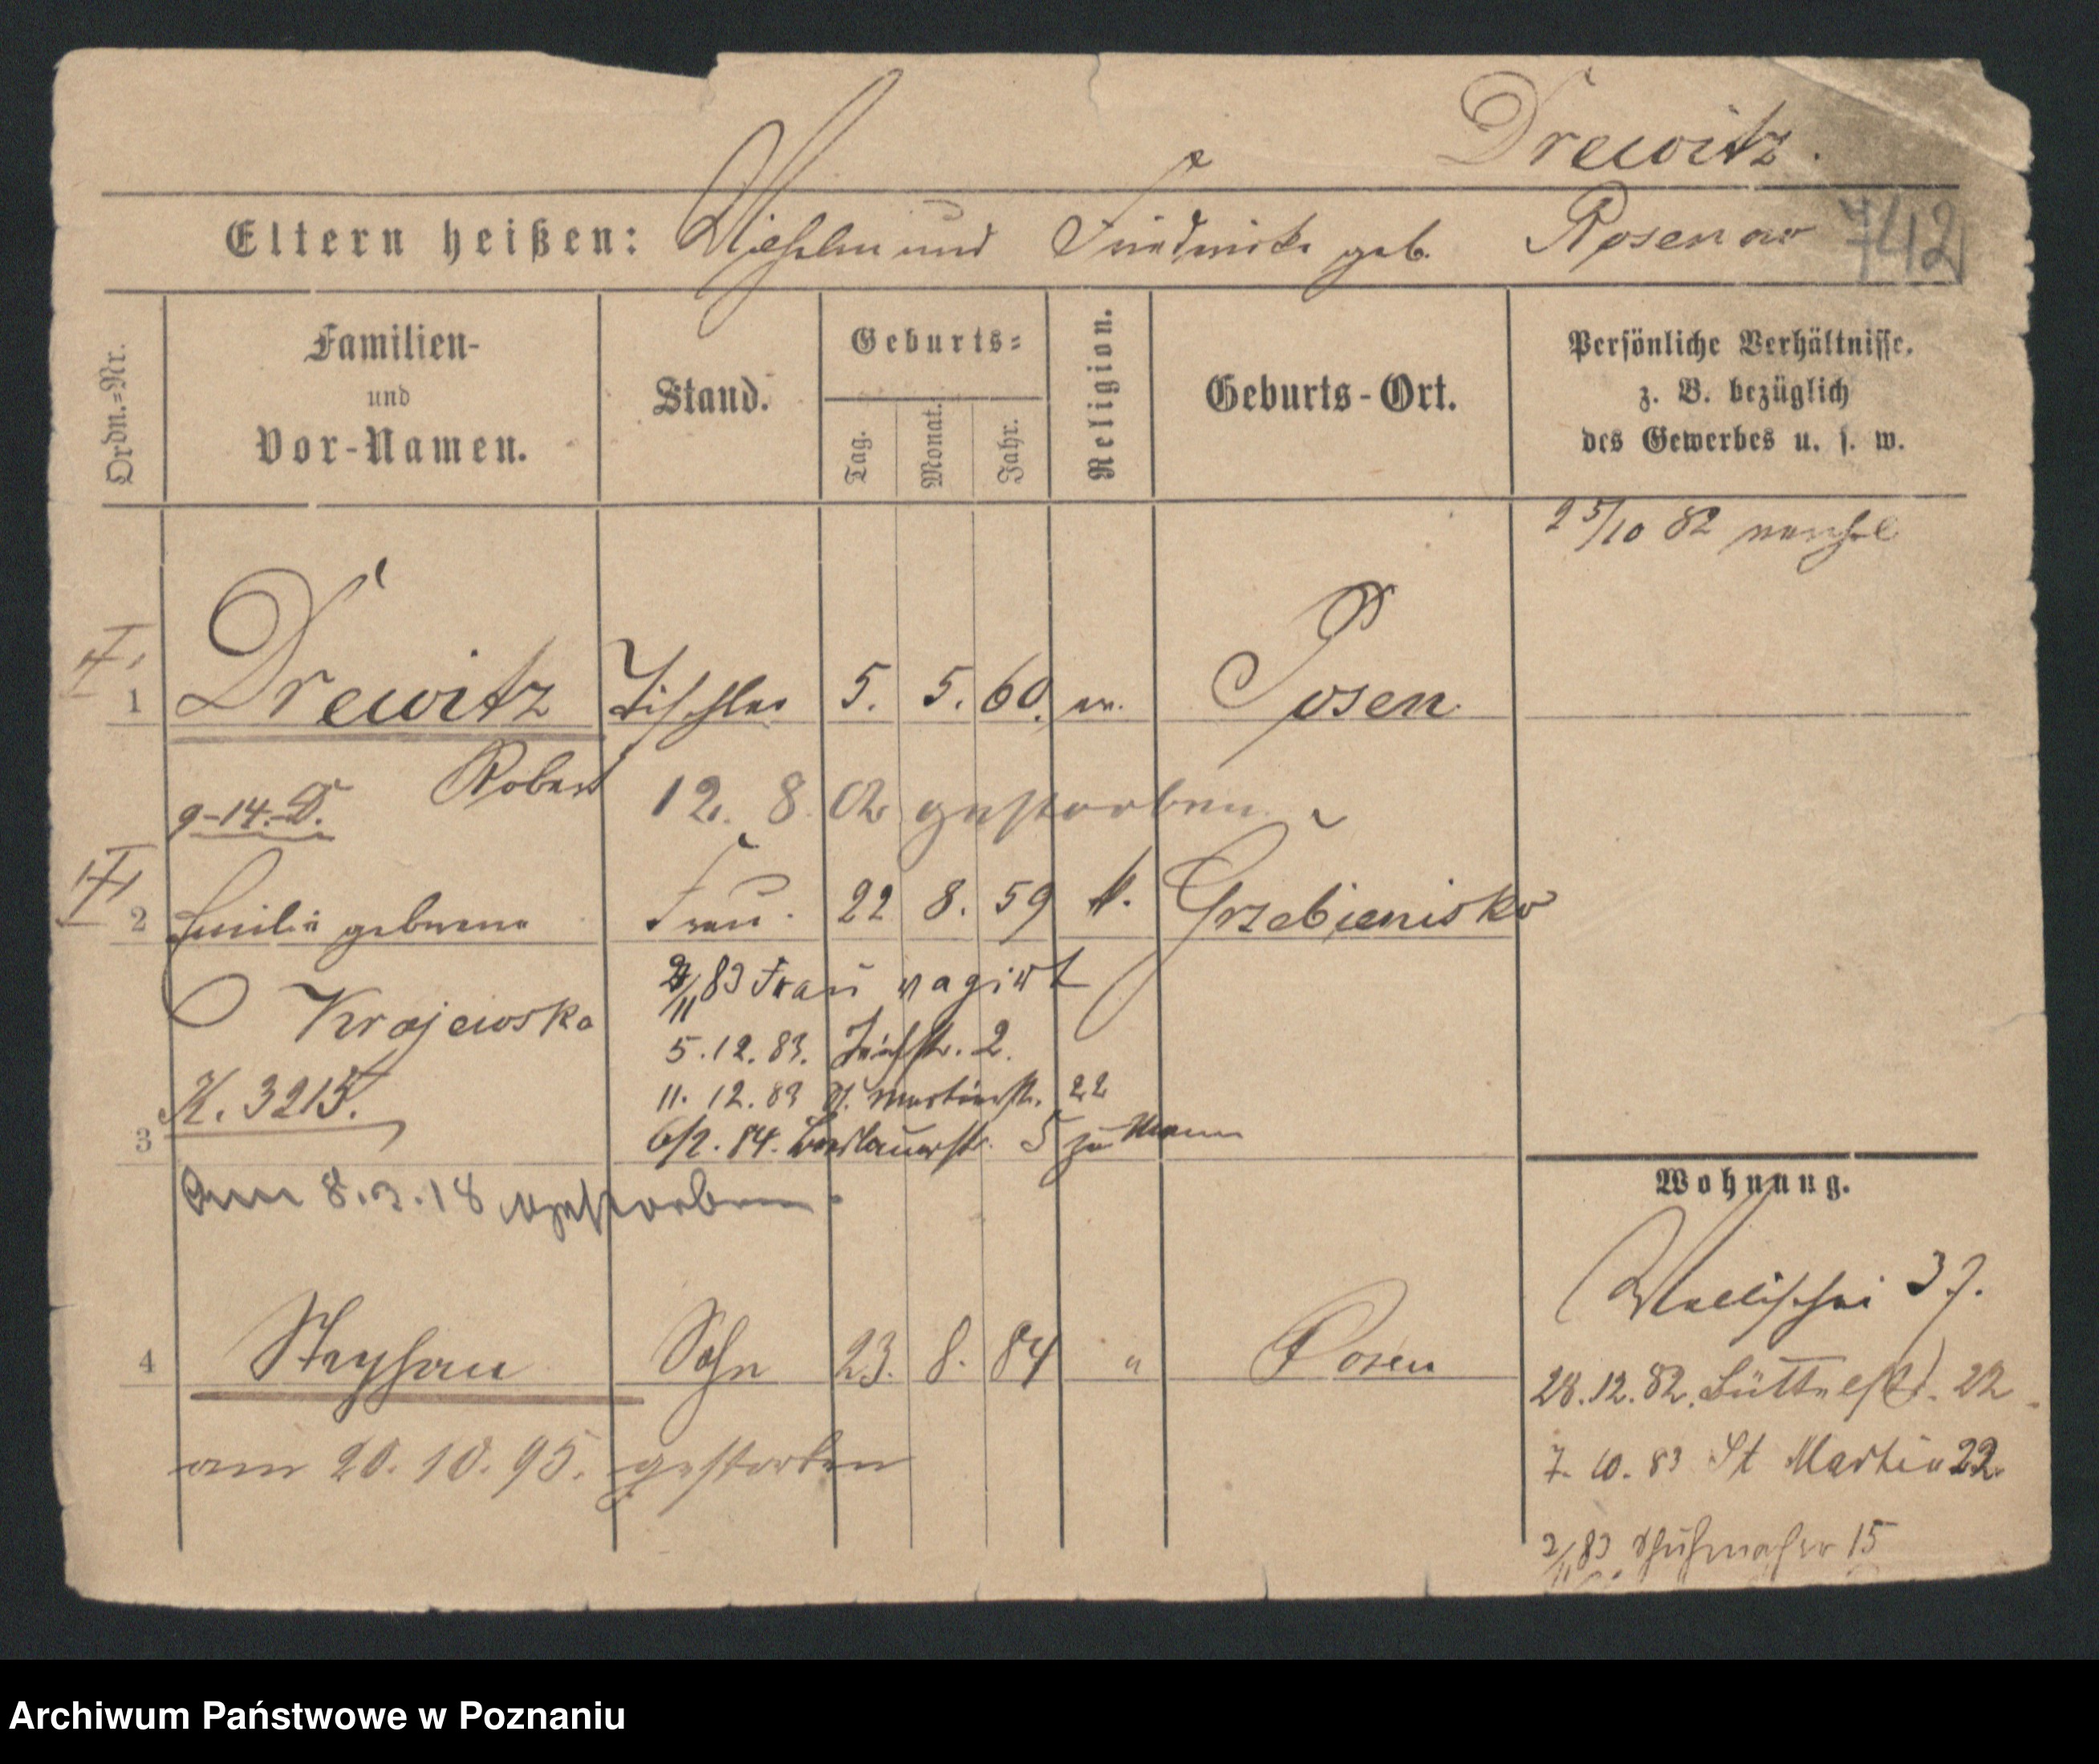 Drewitz.
Eltern heißen: Wilhelm und Friedericke geb. Rosenau
Ordn.=Nr.
Familien-
und
Vor-Namen.
Stand.
Geburts=
Tag.
Monat.
Jahr.
Religion.
Geburts-Ort.
Persönliche Verhältnisse,
z. B. bezüglich
des Gewerbes u. s. w.
25/10 82
1 Drewitz Tischler 5. 5. 60. ev. Posen
Robert 12. 8. 02 gestorben
9-14.D.
2 Emilie geborene Frau. 22 8. 59 k. Grzebienisko
2/11 83 Frau vagirt
Krajewska
5.12.83. Teichstr. 2.
K. 3215.
11. 12. 83 St. Martinstr. 22
3
6/2. 84. Breslauerstr. 5 zu Mann
am 8.3.18 gestorben
Wohnung.
Wallischei 37.
4 Stephan Sohn 23. 8. 84 " Posen
28.12.82. Büttelstr. 22
am 20.10.95. gestorben
7. 10. 83 St Martin 22.
2/11 83 Schuhmacher 15
Archiwum Państwowe w Poznaniu